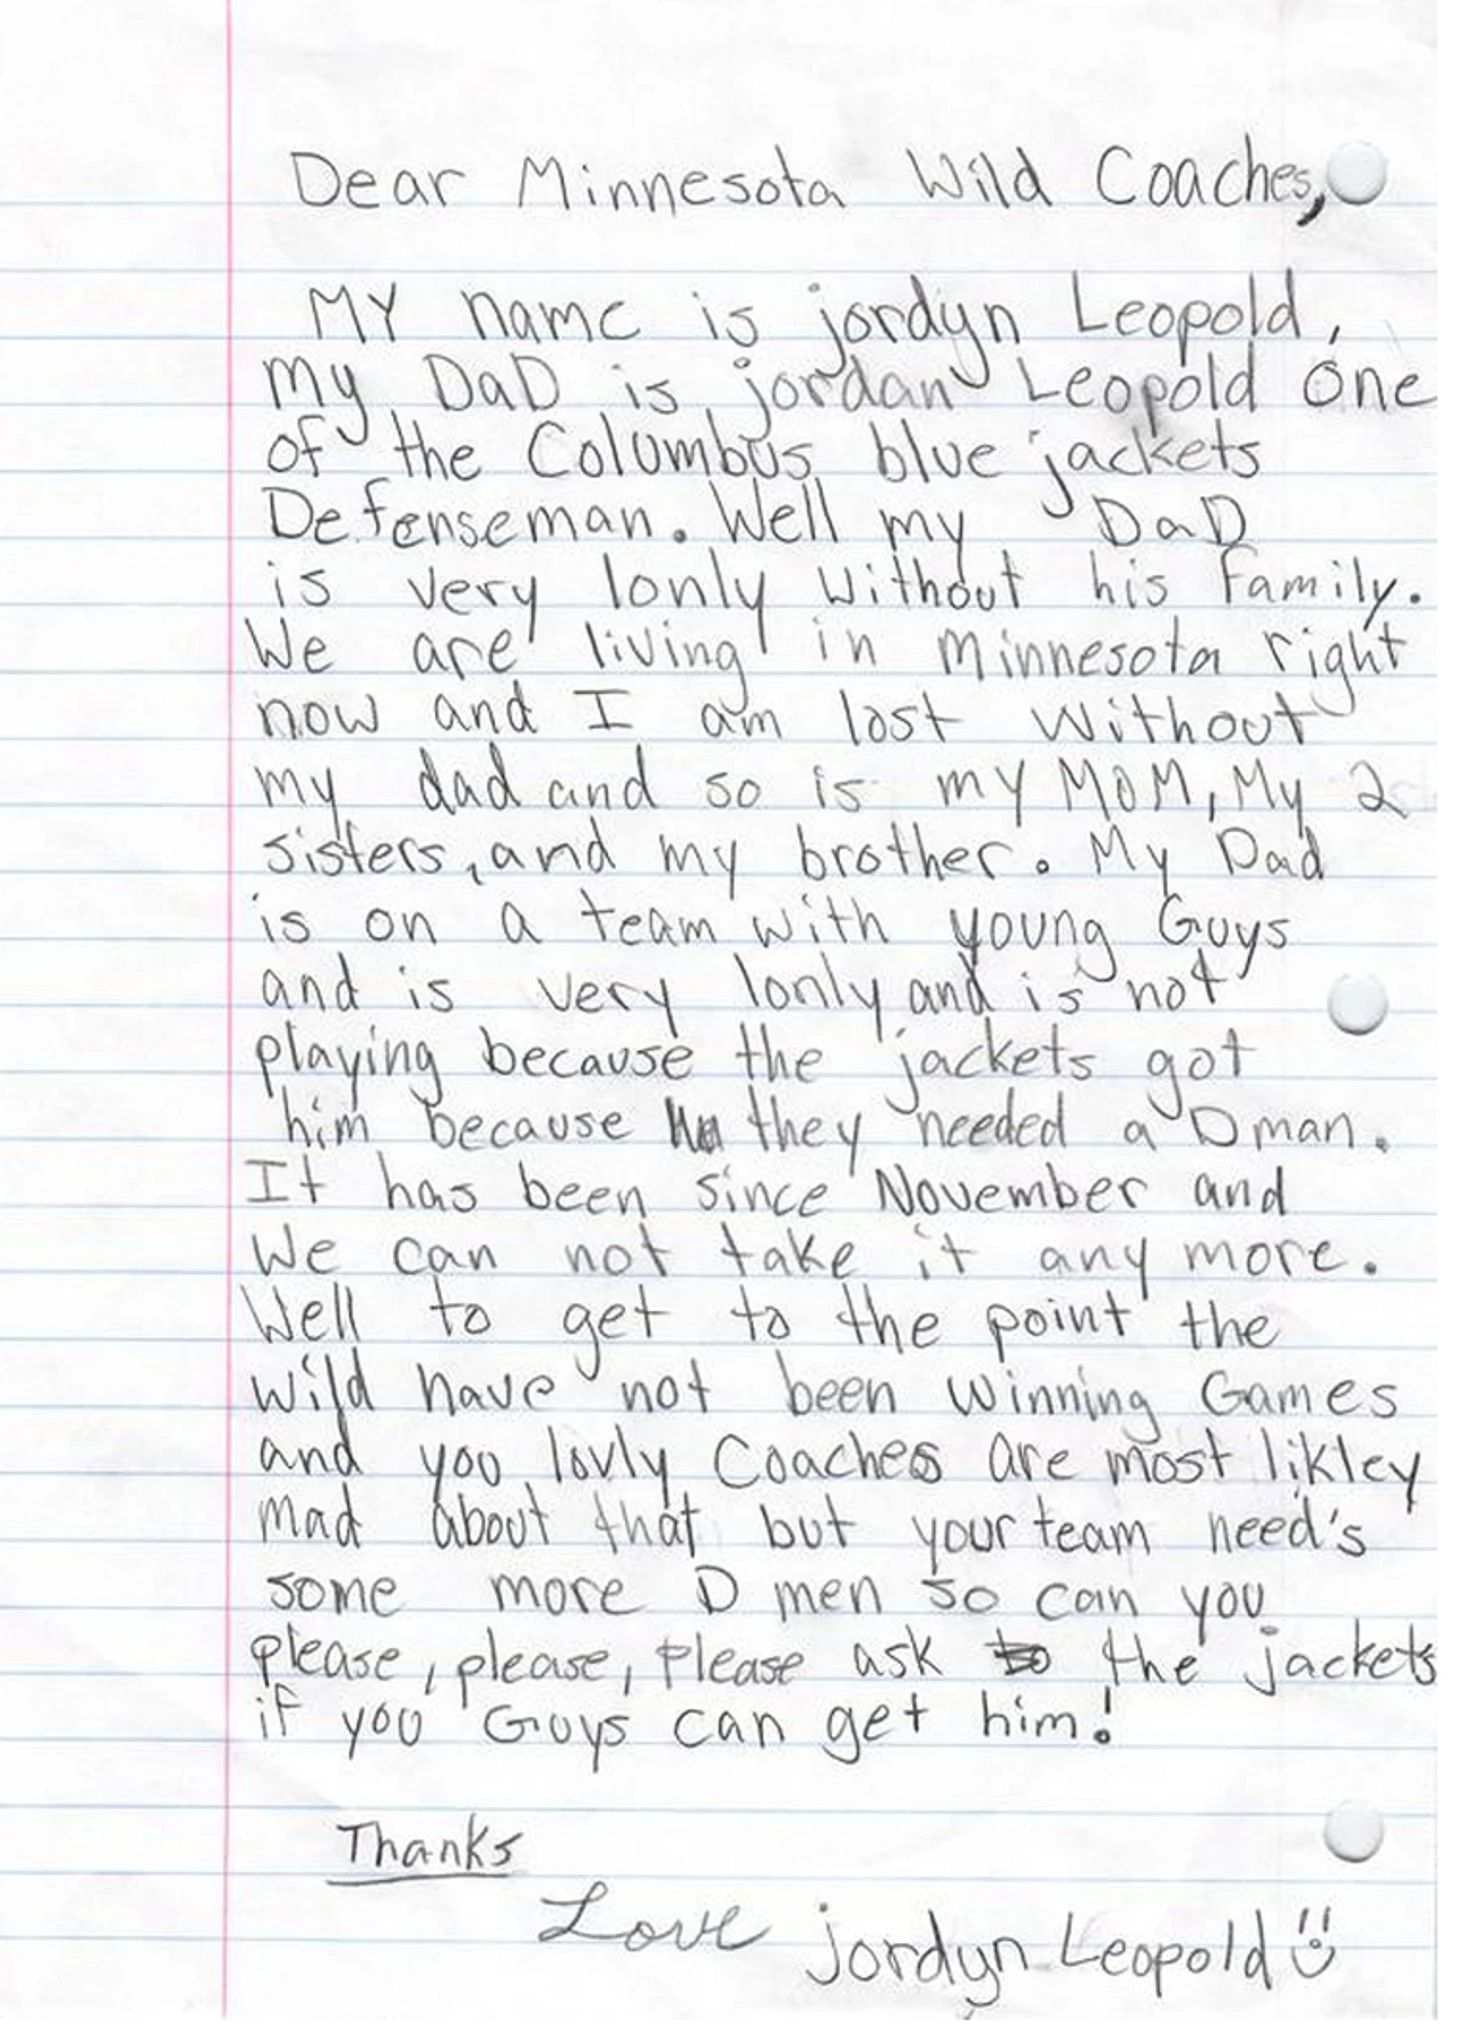 Dear Minnesota Wild Coaches,
MY name is jordyn Leopold,
my DaD is jordan Leopold one
of the Columbus blue jackets
Defenseman. Well my DaD
is very lonly without his family.
We are living in minnesota right
now and I am lost without
my dad and so is my MOM, My 2
sisters, and my brother. My Dad
is on a team with young Guys
and is very lonly and is not
playing because the jackets got
him because they needed a D man.
It has been since November and
We can not take it any more.
Well to get to the point the
wild have not been winning Games
and you lovly Coaches are most likley
mad about that but your team need's
some more D men so can you
please, please, please ask to the jackets
if you Guys can get him!
Thanks
Love jordyn Leopold